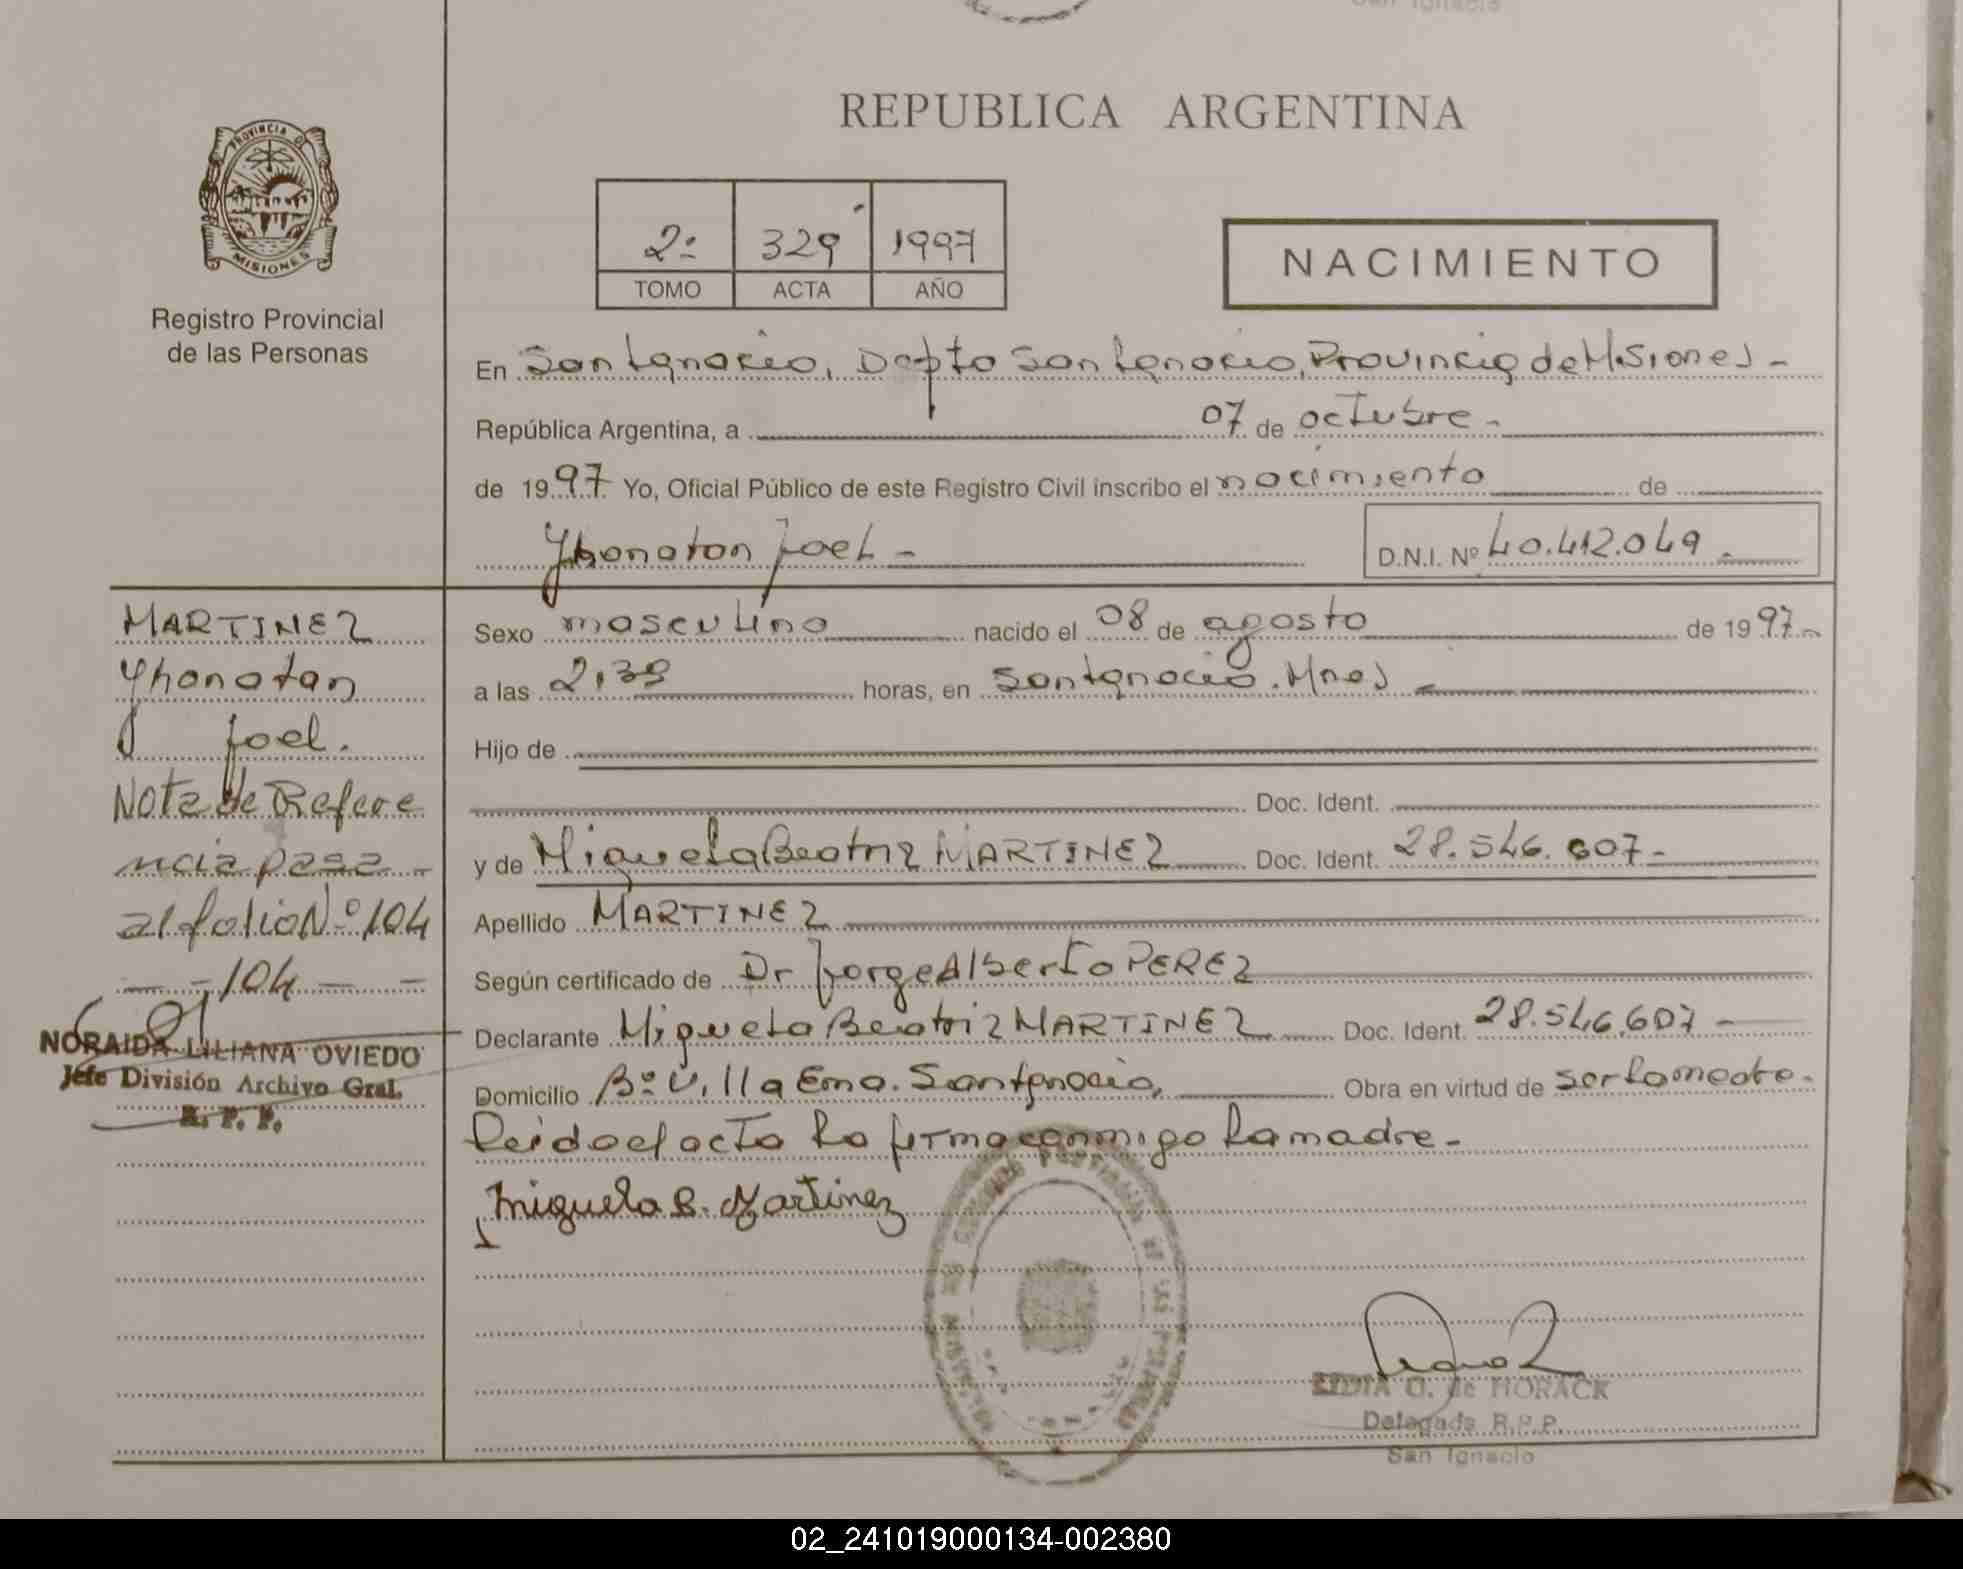 San Ignacio
REPUBLICA ARGENTINA
PROVINCIA DE
MISIONES
Registro Provincial
de las Personas
2º 329 1997
TOMO ACTA AÑO
NACIMIENTO
En San Ignacio, Depto San Ignacio, Provincia de Misiones -
República Argentina, a 07 de octubre -
de 1997 Yo, Oficial Público de este Registro Civil inscribo el nacimiento de
Yhonatan Joel - D.N.I. Nº 40.412.049 -
MARTINEZ
Yhonatan
Joel.
Nota de Refere
ncia pasa -
al folio Nº 104
- - 104 - -
NORAIDA LILIANA OVIEDO
Jefe División Archivo Gral.
R. P. P.
Sexo masculino nacido el 08 de agosto de 1997 -
a las 2,39 horas, en San Ignacio. Mnes -
Hijo de
Doc. Ident.
y de Miguela Beatriz MARTINEZ Doc. Ident. 28.546.607 -
Apellido MARTINEZ
Según certificado de Dr Jorge Alberto PEREZ
Declarante Miguela Beatriz MARTINEZ Doc. Ident. 28.546.607 -
Domicilio Bº Villa Ema. San Ignacio, Obra en virtud de ser la madre.
Leido el acta la firma conmigo la madre -
Miguela B. Martinez
LIDIA O. de HORACK
Delegada R.P.P.
San Ignacio
02_241019000134-002380